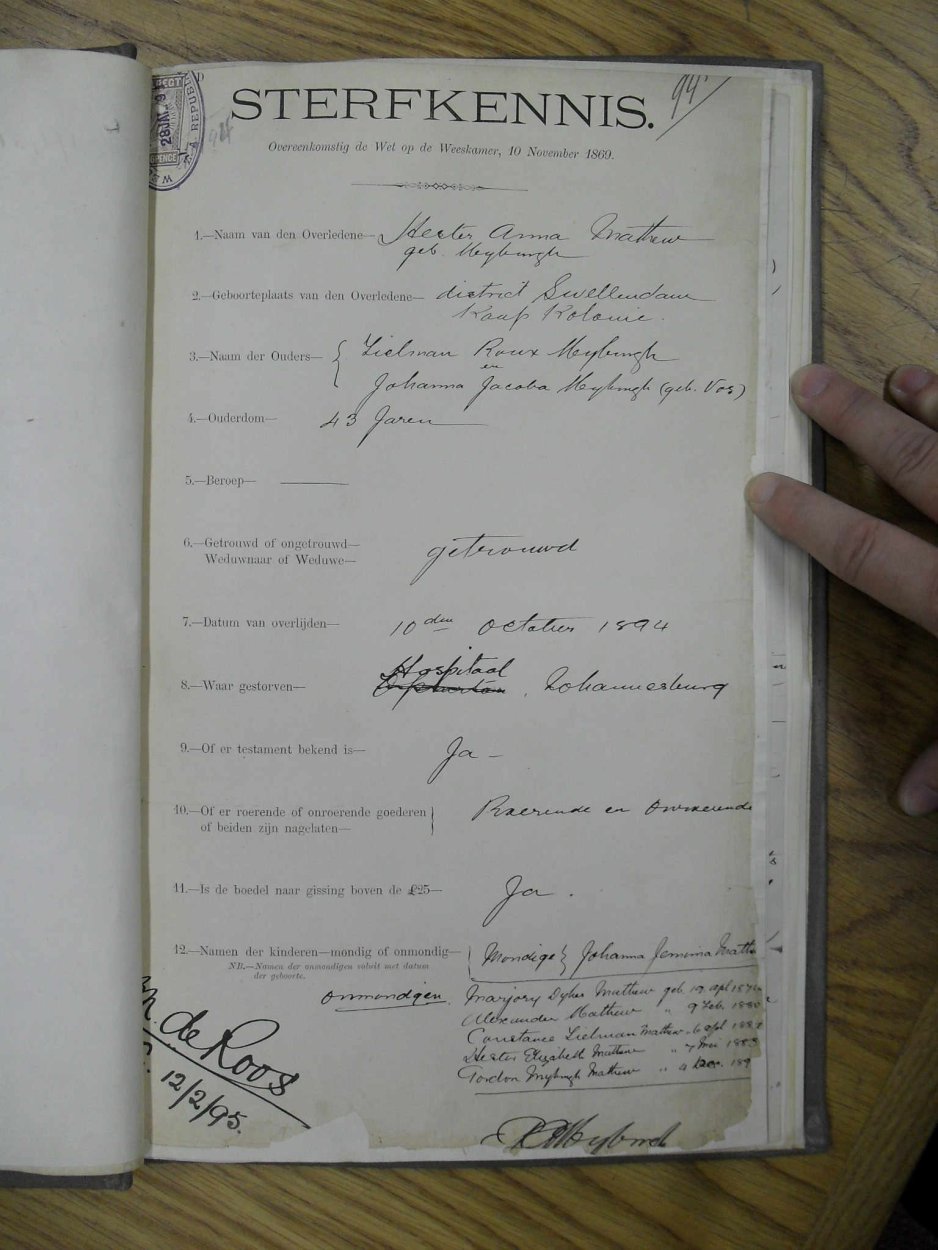 94
STERFKENNIS.
Overeenkomstig de Wet op de Weeskamer, 10 November 1869.
1.—Naam van den Overledene— Hester Anna Mathew
geb. Meyburgh
2.—Geboorteplaats van den Overledene— district Swellendam
Kaap Kolonie.
3.—Naam der Ouders— Tielman Roux Meyburgh
en
Johanna Jacoba Meyburgh (geb. Vos)
4.—Ouderdom— 43 Jaren
5.—Beroep—
6.—Getrouwd of ongetrouwd—
Weduwnaar of Weduwe— getrouwd
7.—Datum van overlijden— 10den October 1894
8.—Waar gestorven— Hospitaal, Johannesburg
9.—Of er testament bekend is— Ja —
10.—Of er roerende of onroerende goederen
of beiden zijn nagelaten— Roerende en Onroerende
11.—Is de boedel naar gissing boven de £25— Ja.
12.—Namen der kinderen—mondig of onmondig— Mondige } Johanna Jemima Math
NB.—Namen der onmondigen voluit met datum
der geboorte.
onmondigen. Marjory Dykes Mathew geb. 19 apl
Alexander Mathew " 9 Feb.
Constance Tielman Mathew " 6 apl
Hester Elizabeth Mathew " 7 Mei
Gordon Meyburgh Mathew " 4 Dec.
de Roos
12/2/95.
Meyburgh
28 JA
REPUBL
PENCE